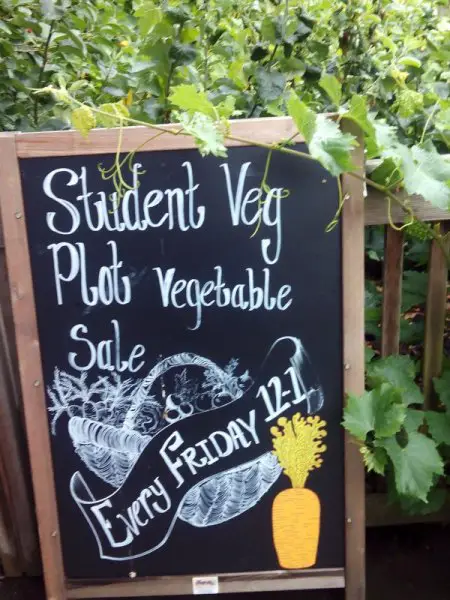 Student Veg
Plot Vegetable
Sale
Every FRIDAY 12-1